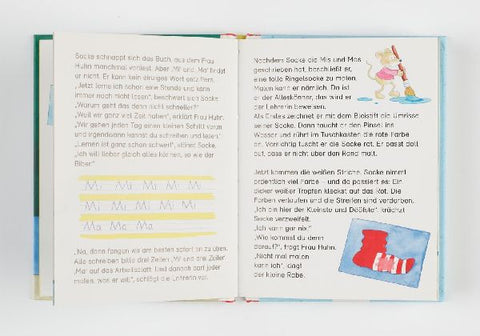 Socke schnappt sich das Buch, aus dem Frau
Huhn manchmal vorliest. Aber „Mi“ und „Ma“ findet
er nicht. Er kann kein einziges Wort entziffern.
„Jetzt lerne ich schon eine Stunde und kann
immer noch nicht lesen“, beschwert sich Socke.
„Warum geht das denn nicht schneller?“
„Weil wir ganz viel Zeit haben“, erklärt Frau Huhn.
„Wir gehen jeden Tag einen kleinen Schritt voran
und irgendwann kannst du schreiben und lesen.“
„Lernen ist ganz schön schwer!“, stöhnt Socke.
„Ich will lieber gleich alles können, so wie der
Biber.“
Mi Mi Mi Mi Mi
Mi Mi Mi Mi Mi
Ma Ma Ma
„Na, dann fangen wir am besten sofort an zu üben.
Alle schreiben bitte drei Zeilen ‚Mi‘ und drei Zeilen
‚Ma‘ auf das Arbeitsblatt. Und danach darf jeder
malen, was er will“, schlägt die Lehrerin vor.
Nachdem Socke die Mis und Mas
geschrieben hat, beschließt er,
eine tolle Ringelsocke zu malen.
Malen kann er nämlich. Da ist
er der Alleskönner, das wird er
der Lehrerin beweisen.
Als Erstes zeichnet er mit dem Bleistift die Umrisse
seiner Socke. Dann taucht er den Pinsel ins
Wasser und rührt im Tuschkasten die rote Farbe
an. Vorsichtig tuscht er die Socke rot. Er passt doll
auf, dass er nicht über den Rand malt.
Jetzt kommen die weißen Striche. Socke nimmt
ordentlich viel Farbe – und da passiert es: Ein
dicker weißer Tropfen klackst auf das Rot. Die
Farben verlaufen und die Streifen sind verdorben.
„Ich bin hier der Kleinste und Dööfste“, krächzt
Socke verzweifelt.
„Ich kann gar nix!“
„Wie kommst du denn
darauf?“, fragt Frau Huhn.
„Nicht mal malen
kann ich“, klagt
der kleine Rabe.